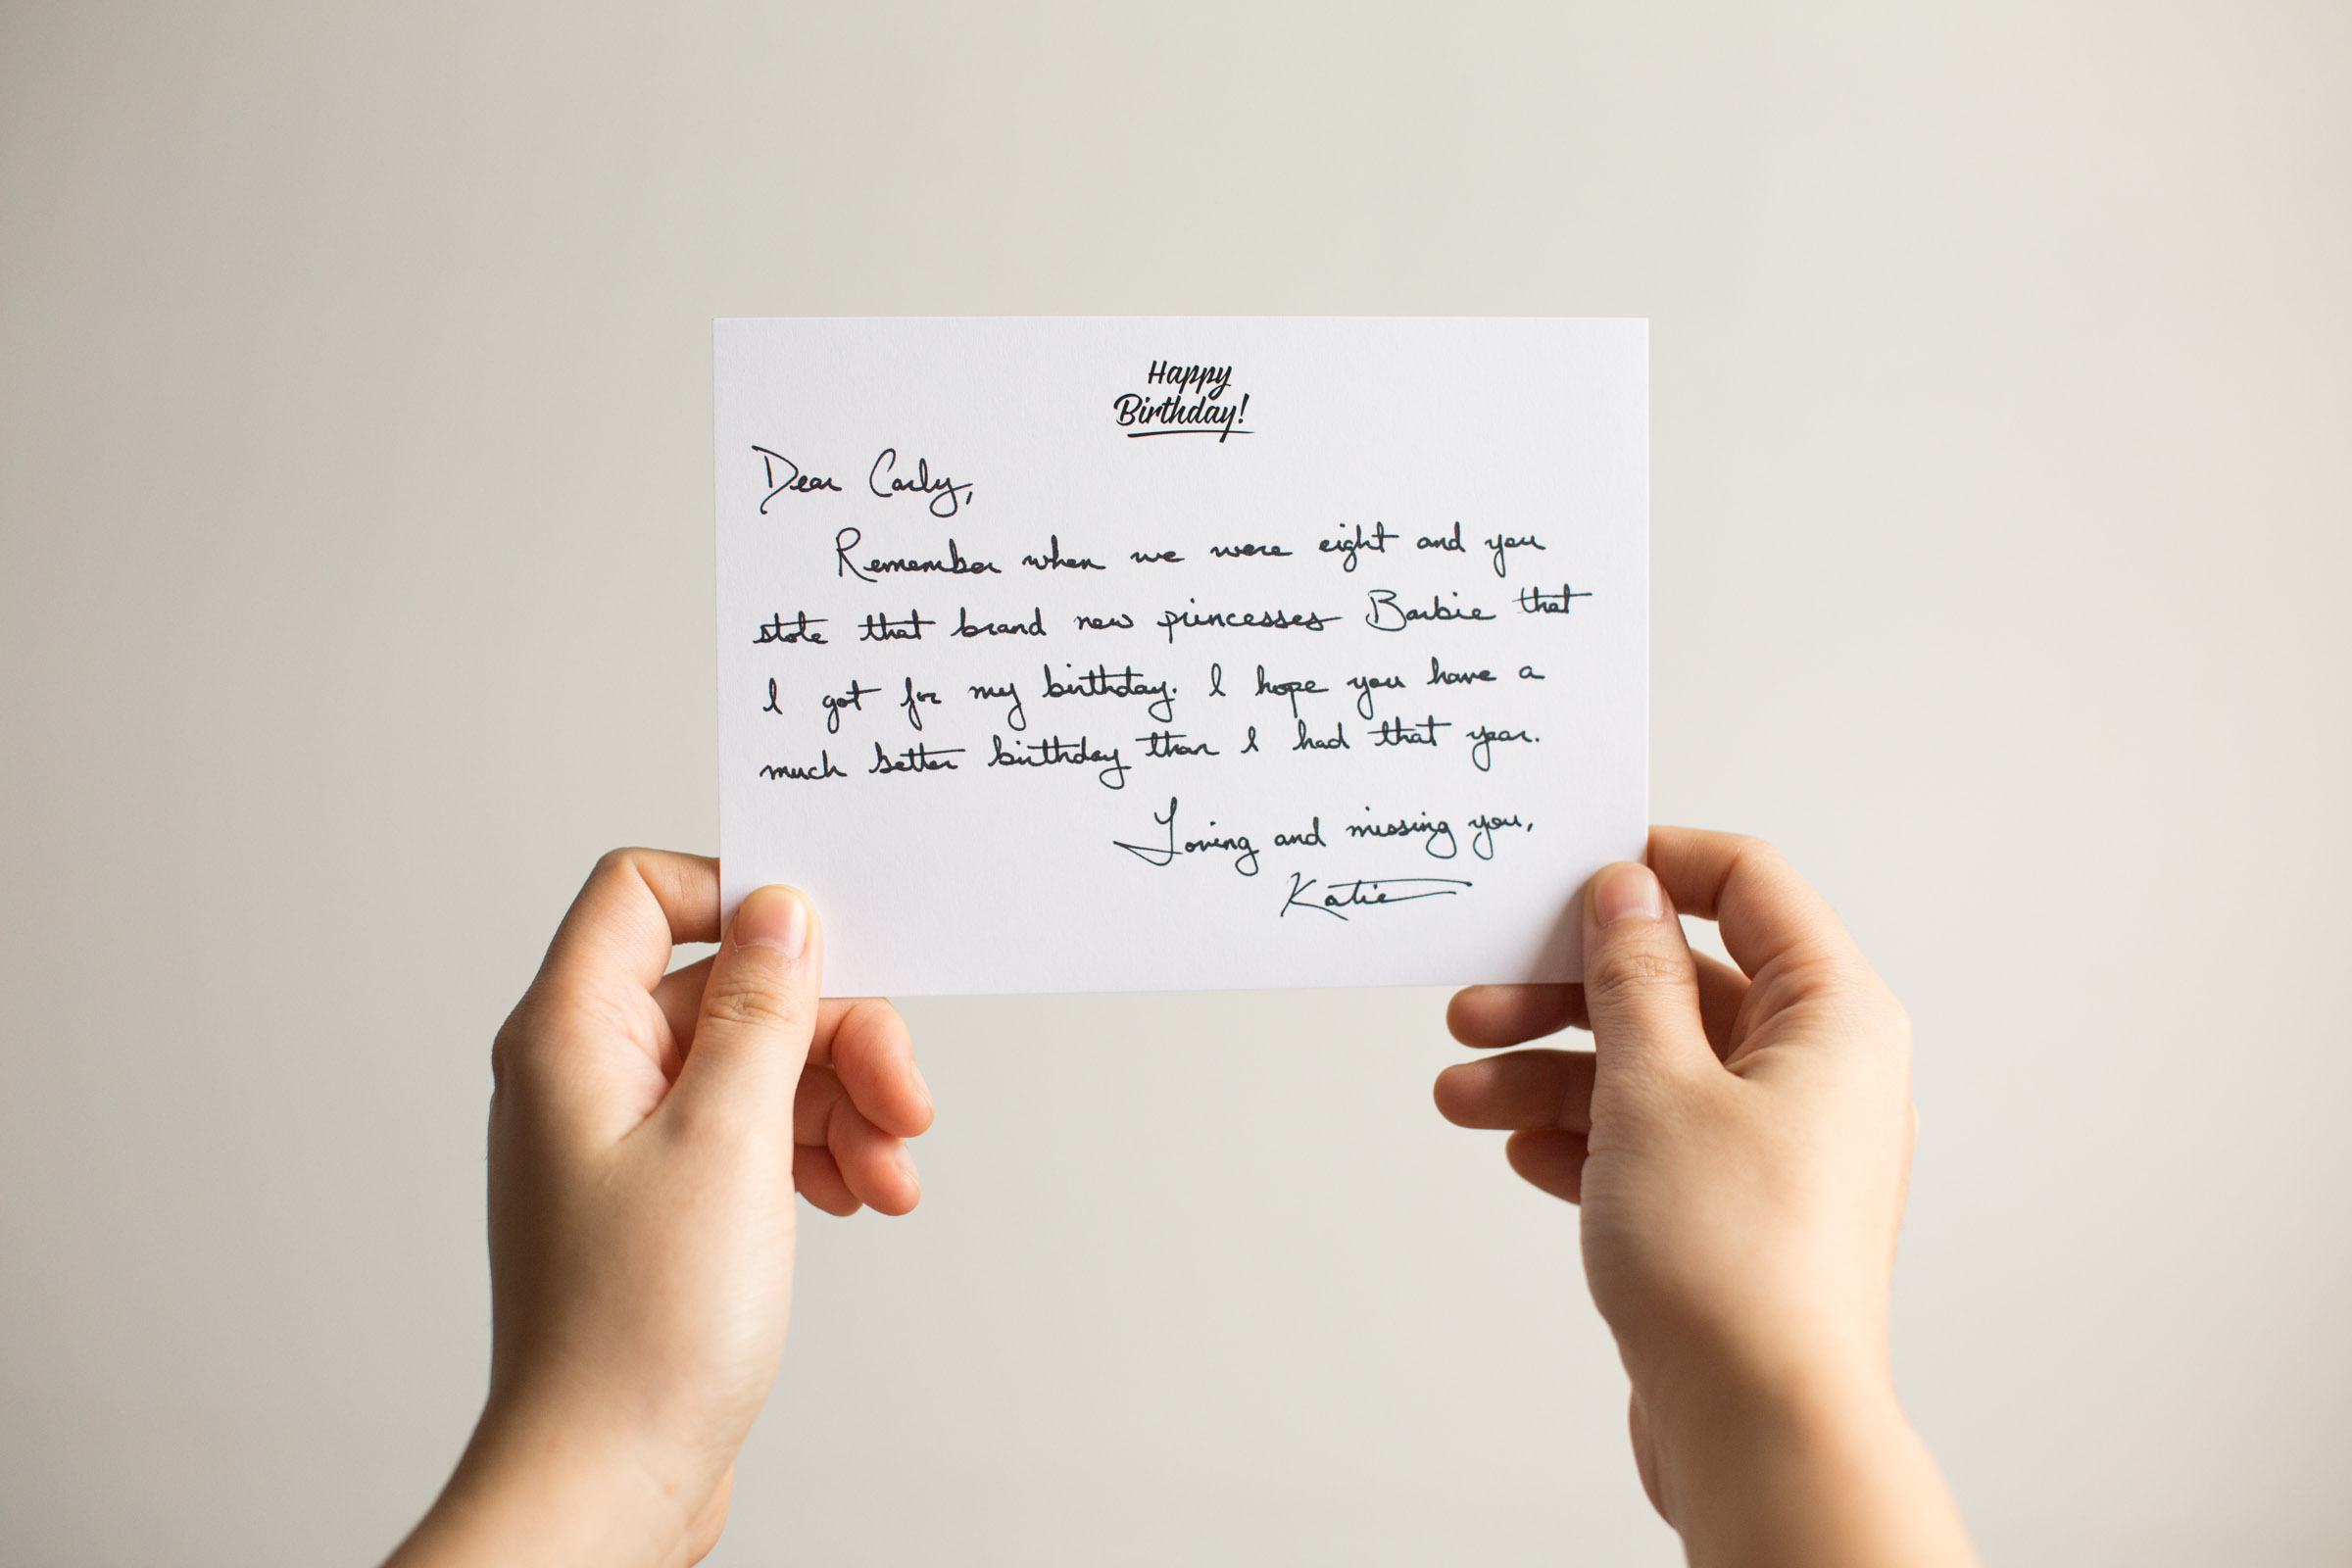 Happy
Birthday!
Dear Carly,
Remember when we were eight and you
stole that brand new princesses Barbie that
I got for my birthday. I hope you have a
much better birthday than I had that year.
Loving and missing you,
Katie